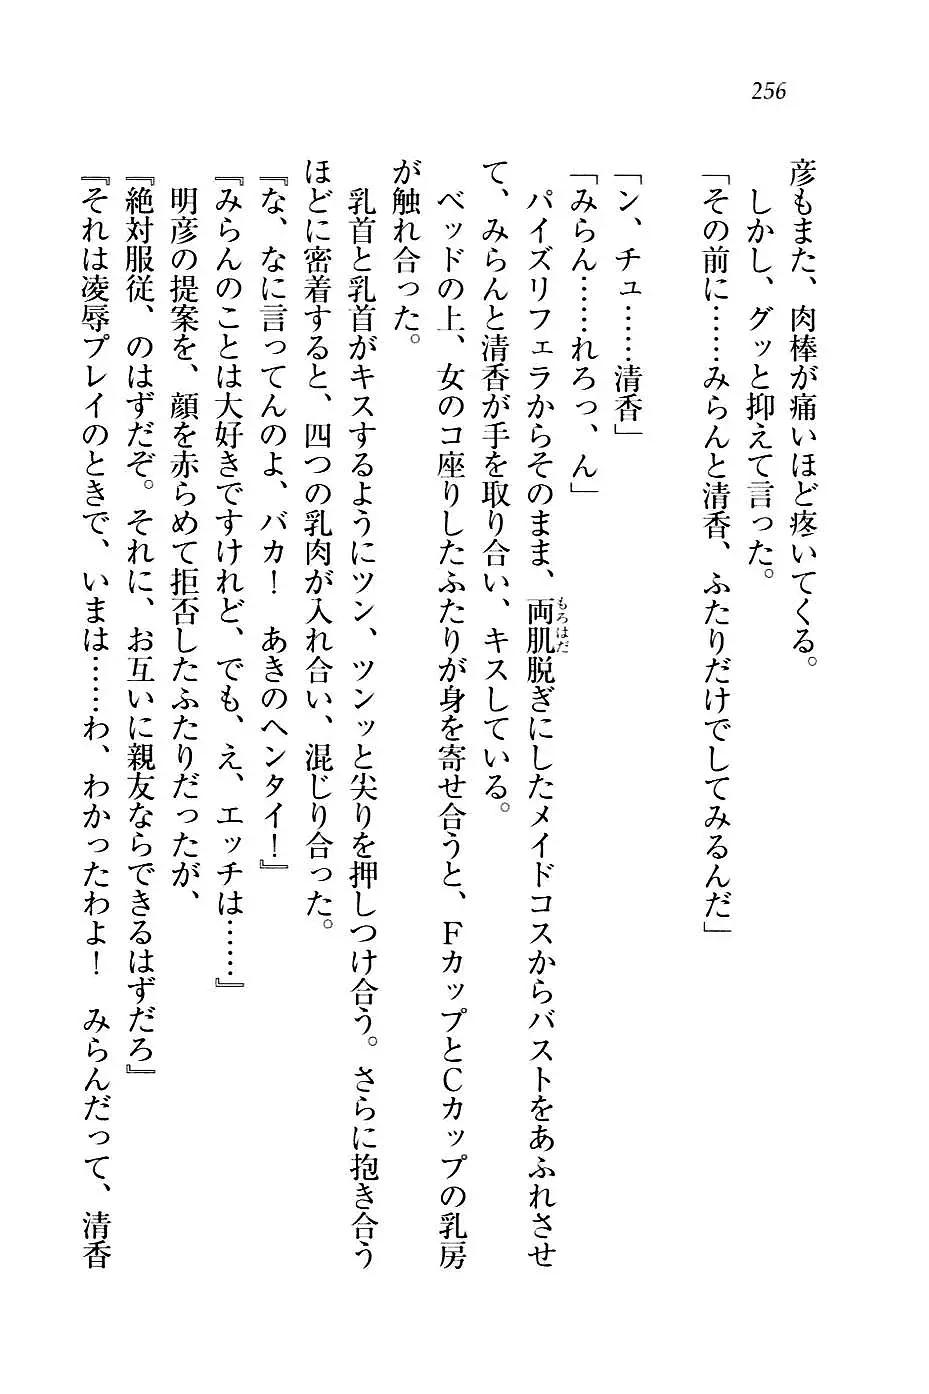 256
彦もまた、肉棒が痛いほど疼いてくる。
　しかし、グッと抑えて言った。
「その前に……みらんと清香、ふたりだけでしてみるんだ」
「ン、チュ……清香」
「みらん……れろっ、ん」
　パイズリフェラからそのまま、両肌脱ぎにしたメイドコスからバストをあふれさせ
もろはだ
て、みらんと清香が手を取り合い、キスしている。
　ベッドの上、女のコ座りしたふたりが身を寄せ合うと、FカップとCカップの乳房
が触れ合った。
　乳首と乳首がキスするようにツン、ツンッと尖りを押しつけ合う。さらに抱き合う
ほどに密着すると、四つの乳肉が入れ合い、混じり合った。
『な、なに言ってんのよ、バカ！　あきのヘンタイ！』
『みらんのことは大好きですけれど、でも、え、エッチは……』
　明彦の提案を、顔を赤らめて拒否したふたりだったが、
『絶対服従、のはずだぞ。それに、お互いに親友ならできるはずだろ』
『それは凌辱プレイのときで、いまは……わ、わかったわよ！　みらんだって、清香